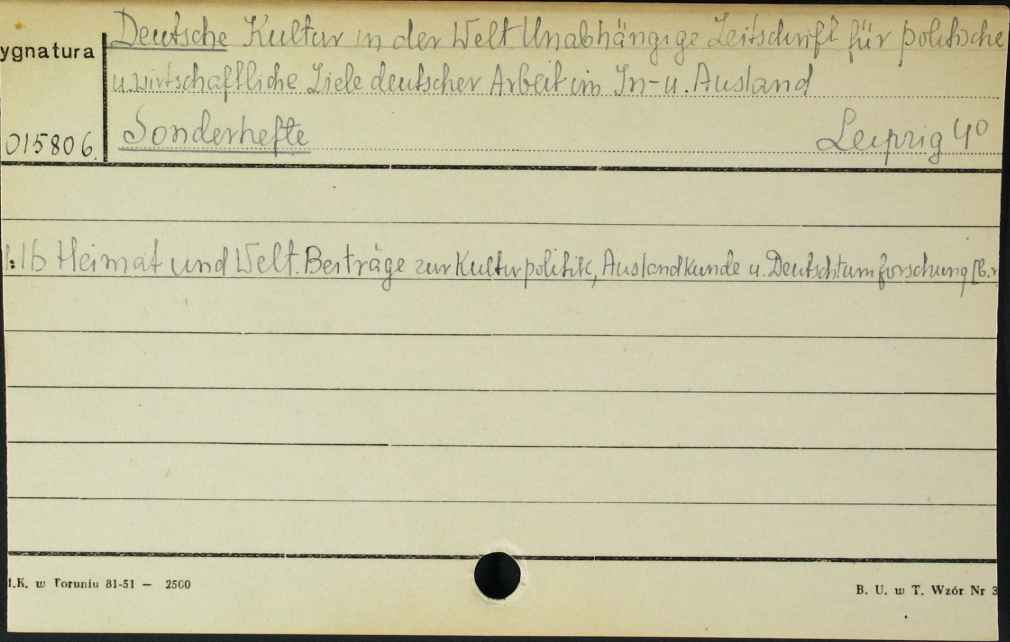 ygnatura
Deutsche Kultur in der Welt Unabhängige Zeitschrift für politische
u. wirtschaftliche Ziele deutscher Arbeit im In- u. Ausland
015806. Sonderhefte Leipzig 4°
:16 Heimat und Welt. Beiträge zur Kulturpolitik, Auslandkunde u. Deutschtumforschung
.K. w Toruniu 81-51 — 2500
B. U. w T. Wzór Nr 3